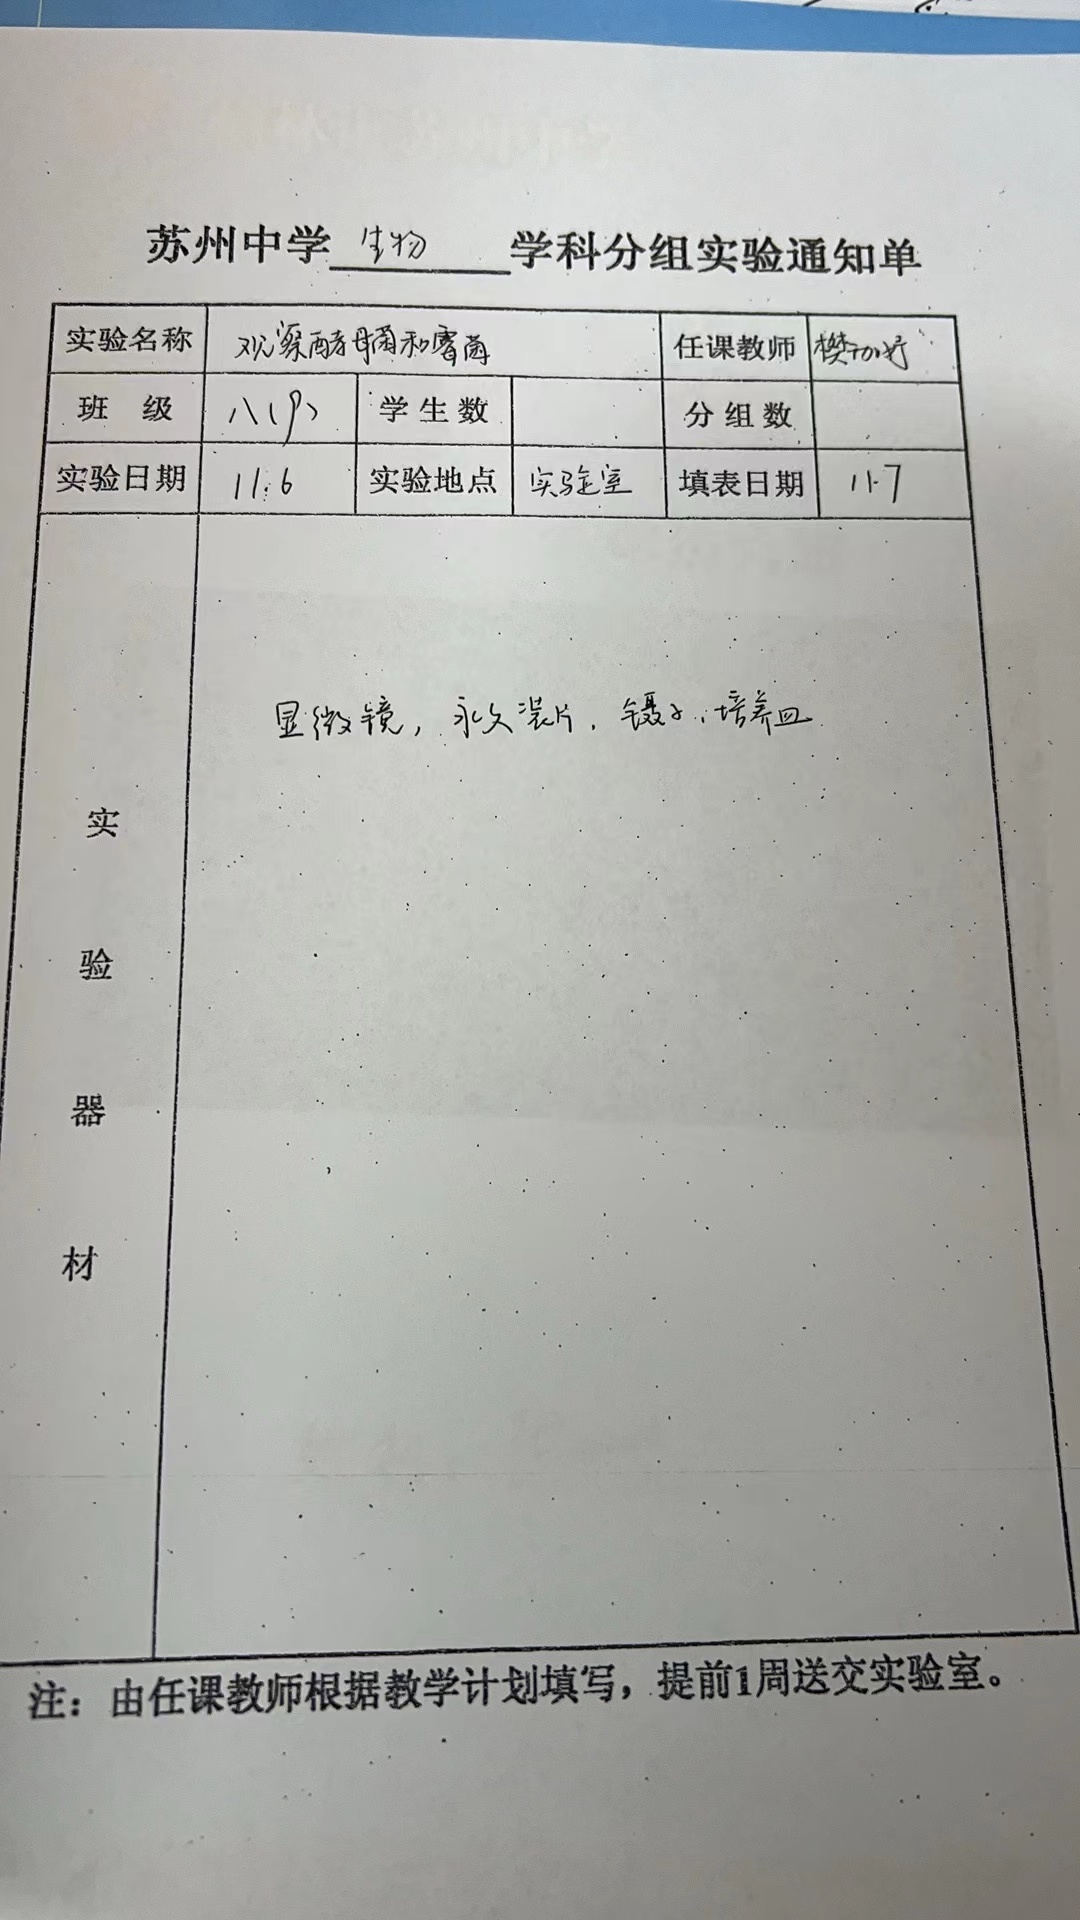 苏州中学 生物 学科分组实验通知单
实验名称 观察酵母菌和霉菌 任课教师 樊
班 级 八(9) 学生数 分组数
实验日期 11.6 实验地点 实验室 填表日期 11.7
显微镜, 永久装片, 镊子, 培养皿
实
验
器
材
注：由任课教师根据教学计划填写，提前1周送交实验室。